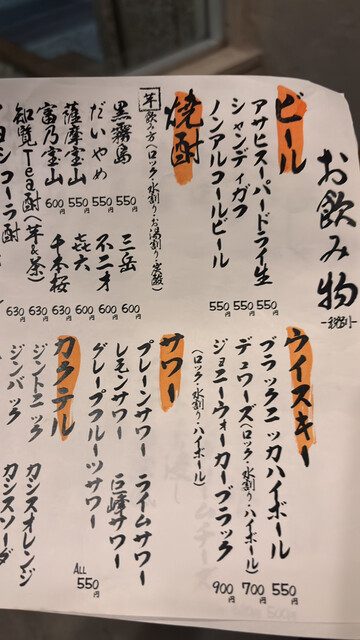 お飲み物
-税別-
ビール
アサヒスーパードライ生 550円
シャンディガフ 550円
ノンアルコールビール 550円
焼酎
飲み方(ロック・水割り・お湯割り・炭酸)
黒霧島 550円
だいやめ 550円
薩摩宝山 550円
富乃宝山 600円
知覧Tea酎(芋&茶) 630円
三岳 600円
不二才 600円
㐂六 600円
千本桜 630円
630円
ウイスキー
ブラックニッカハイボール 550円
デュワーズ(ロック・水割り・ハイボール) 700円
ジョニーウォーカーブラック 900円
(ロック・水割り・ハイボール)
サワー
プレーンサワー ライムサワー
レモンサワー 巨峰サワー
グレープフルーツサワー
ALL 550円
カクテル
ジントニック カシスオレンジ
ジンバック カシスソーダ